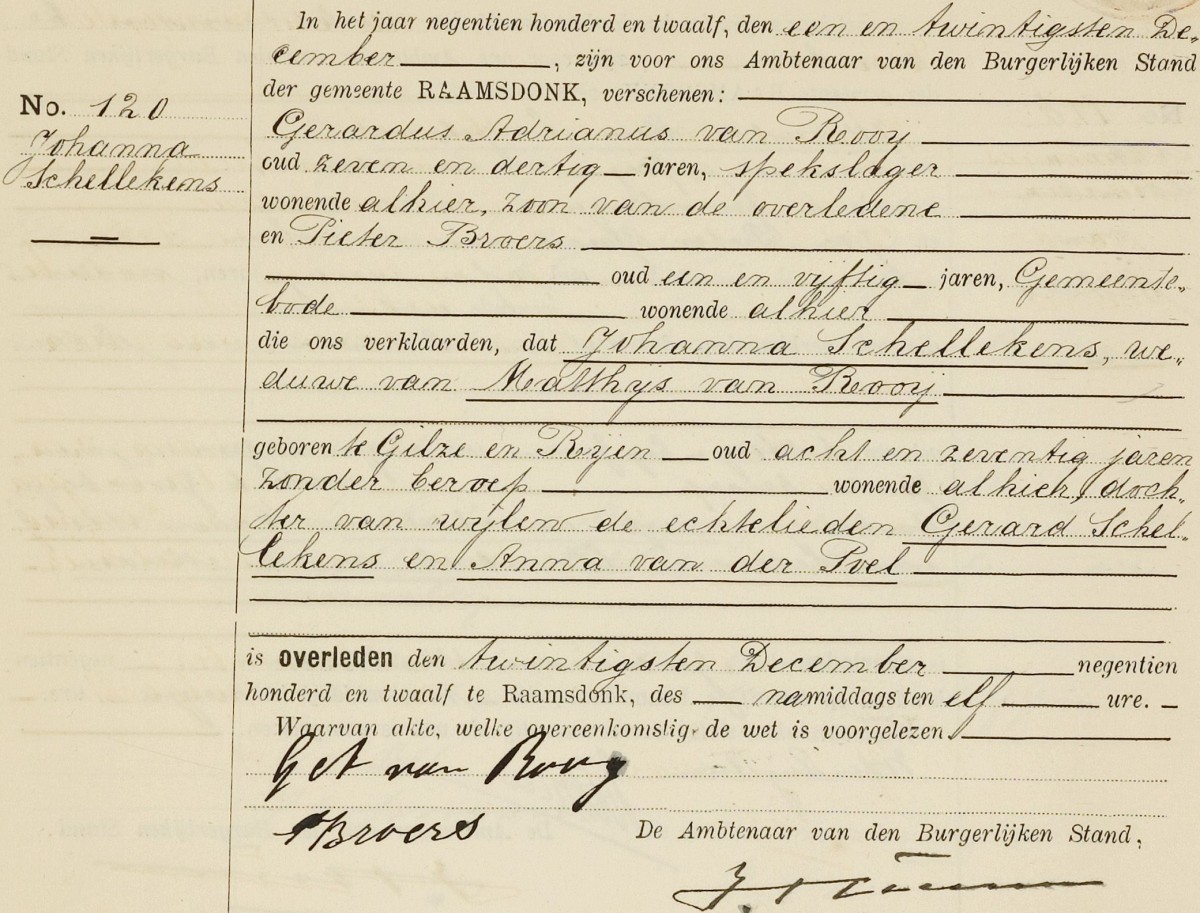 In het jaar negentien honderd en twaalf, den een en twintigsten De-
cember, zijn voor ons Ambtenaar van den Burgerlijken Stand
der gemeente RAAMSDONK, verschenen:
No. 120
Johanna
Schellekens
Gerardus Adrianus van Rooy
oud zeven en dertig jaren, spekslager
wonende alhier, zoon van de overledene
en Pieter Broers
oud een en vijftig jaren, Gemeente-
bode wonende alhier
die ons verklaarden, dat Johanna Schellekens, we-
duwe van Matthijs van Rooij
geboren te Gilze en Rijen oud acht en zeventig jaren
zonder beroep wonende alhier, doch-
ter van wijlen de echtelieden Gerard Schel-
lekens en Anna van der Poel
is overleden den twintigsten December negentien
honderd en twaalf te Raamsdonk, des namiddags ten elf ure.
Waarvan akte, welke overeenkomstig de wet is voorgelezen.
G A van Rooy
PBroers
De Ambtenaar van den Burgerlijken Stand,